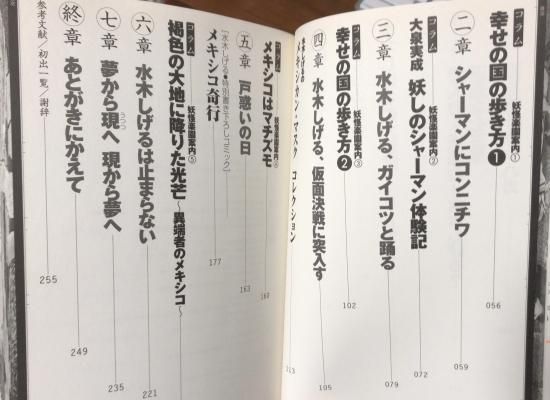 コラム 妖怪楽園案内①
幸せの国の歩き方❶ 056
二章 シャーマンにコンニチワ 059
コラム 妖怪楽園案内②
大泉実成 妖しのシャーマン体験記 072
三章 水木しげる、ガイコツと踊る 079
コラム 妖怪楽園案内③
幸せの国の歩き方❷ 102
四章 水木しげる、仮面決戦に突入す 105
水木しげるのメキシカン・マスク コレクション 113
コラム 妖怪楽園案内④
メキシコはマチズモ 160
五章 戸惑いの日 163
[水木しげる●特別書き下ろしコミック]
メキシコ奇行 177
コラム 妖怪楽園案内⑤
褐色の大地に降りた光芒〜異端者のメキシコ〜
六章 水木しげるは止まらない 221
七章 夢から現へ 現から夢へ 235
うつつ
終章 あとがきにかえて 249
参考文献/初出一覧/謝辞 255